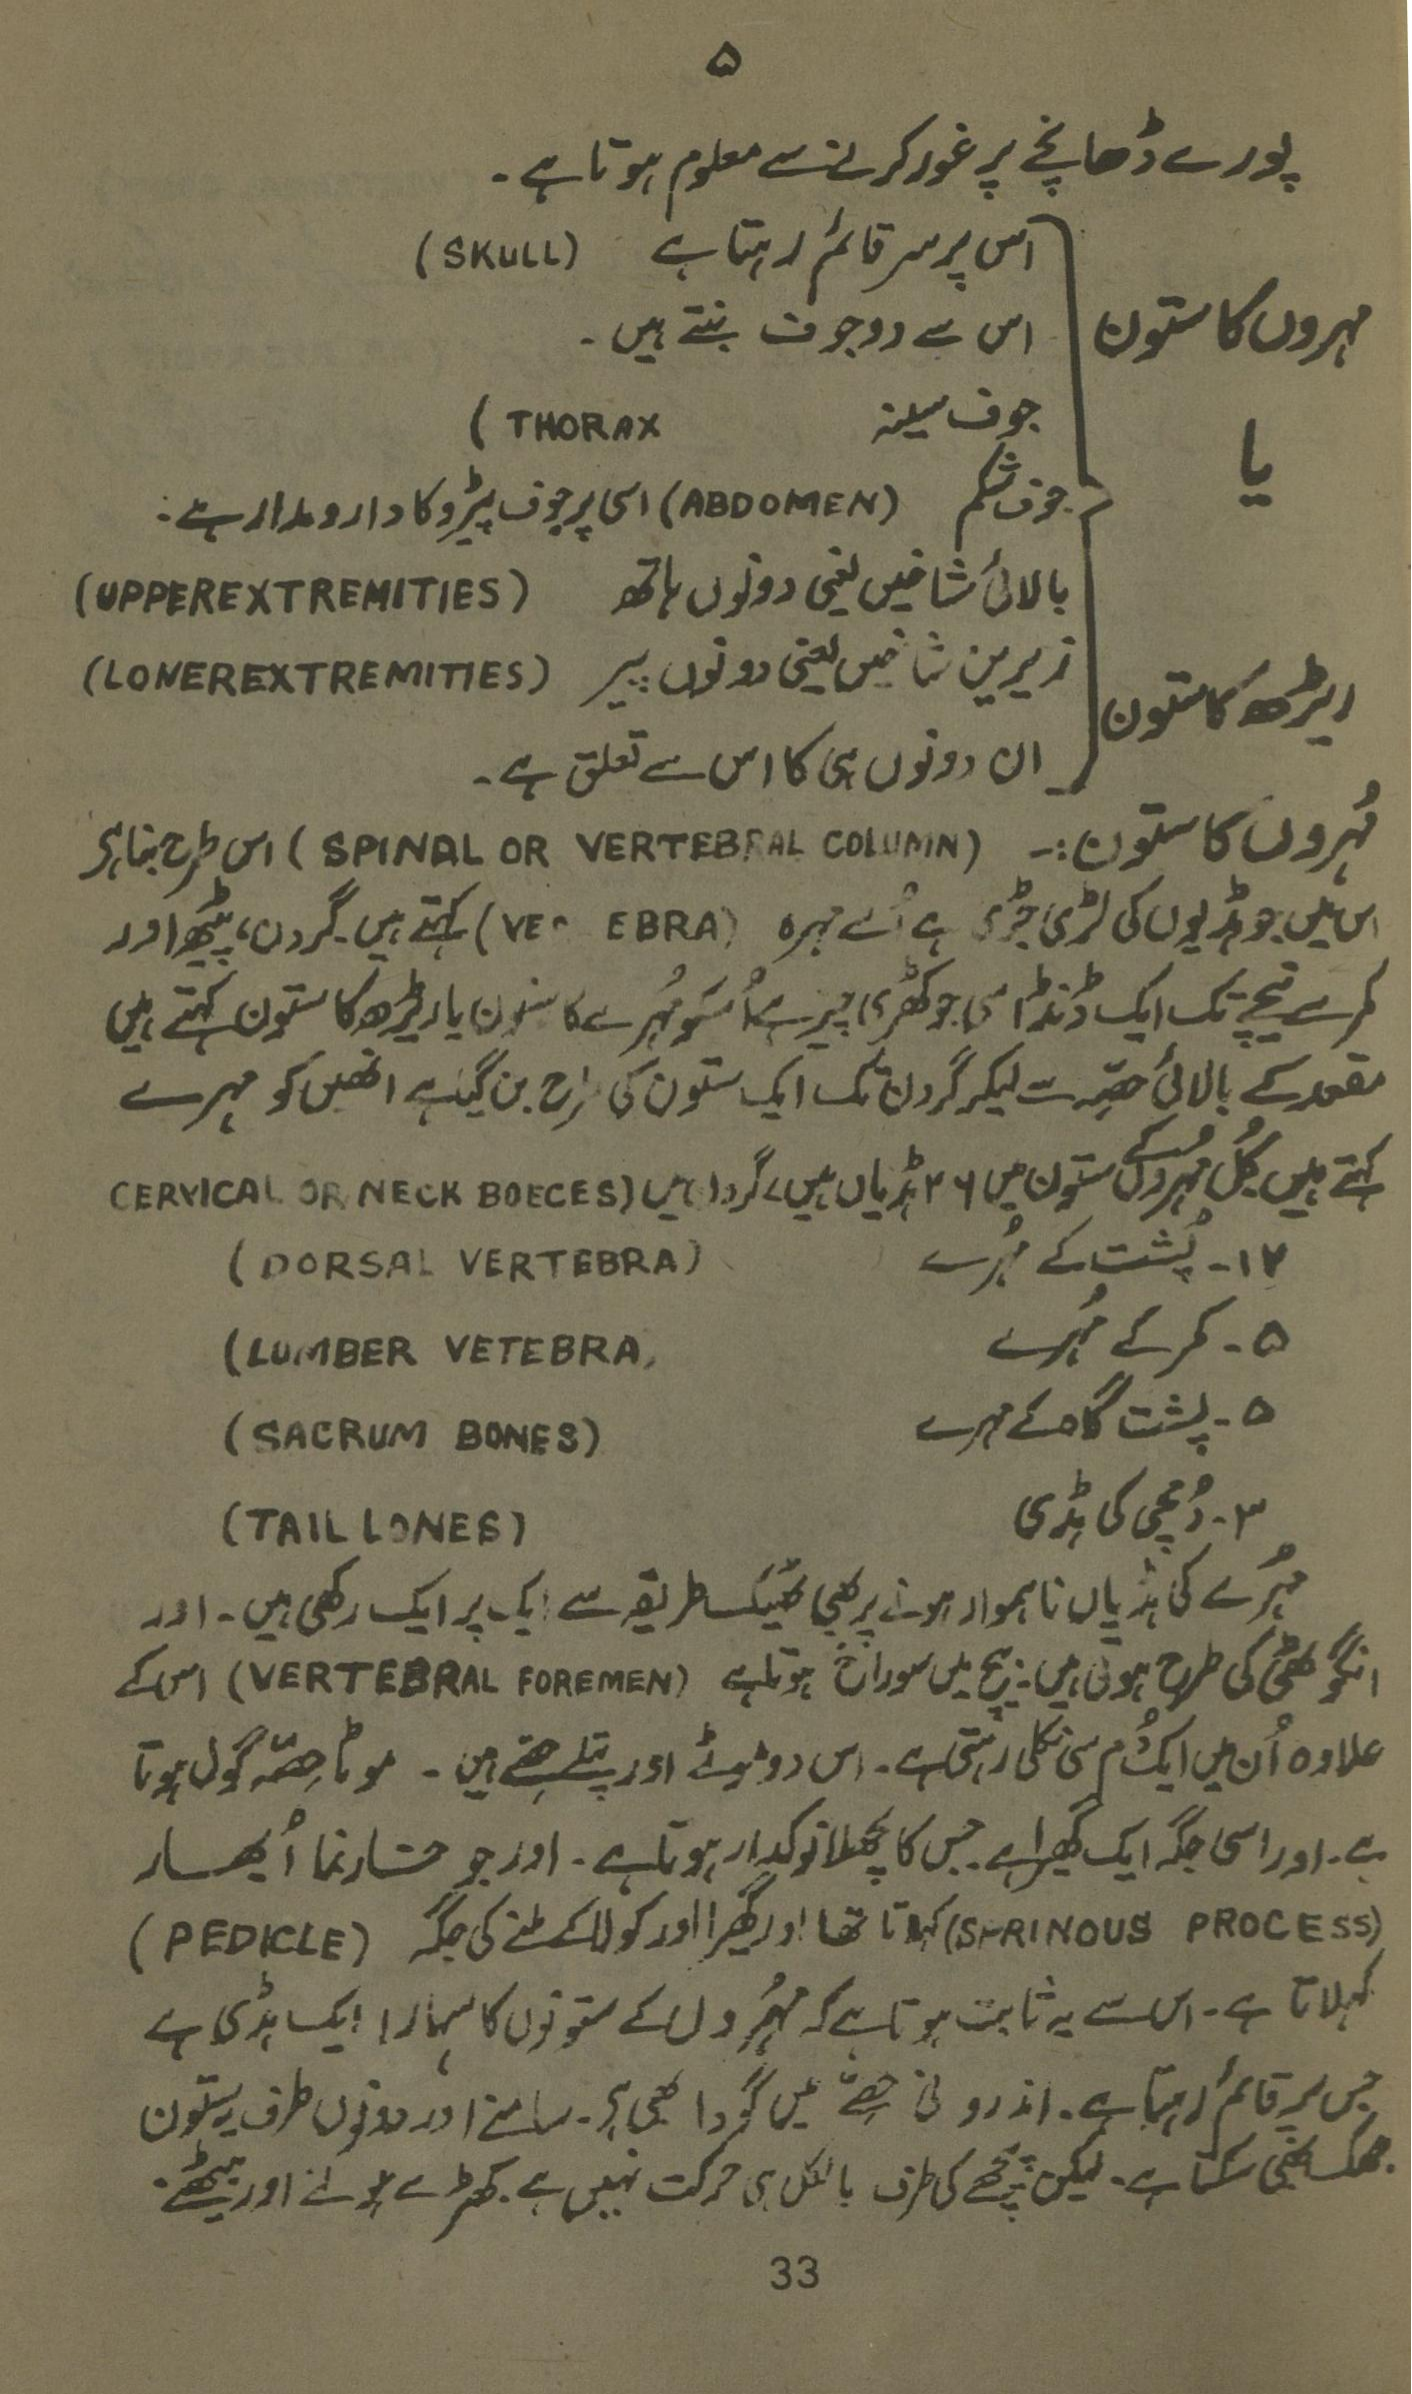 ۵
پورے ڈھانچے پر غور کرنے سے معلوم ہوتا ہے۔
اس پر سر قائم رہتا ہے (SKULL)
مہروں کا ستون
اس سے دو جوف بنتے ہیں۔
جوف سینہ THORAX)
یا
جوف شکم (ABDOMEN) اسی پر جوف پیڑو کا دارومدار ہے۔
بالائی شاخیں یعنی دونوں ہاتھ (UPPEREXTREMITIES)
زیریں شاخیں یعنی دونوں پیر (LONEREXTREMITIES)
ریڑھ کا ستون
ان دونوں ہی کا اس سے تعلق ہے۔
مُہروں کا ستون:۔ (SPINAL OR VERTEBRAL COLUMN) اس طرح بنا ہے
اس میں جو ہڈیوں کی لڑی جڑی ہے اُسے مہرہ (VE EBRA) کہتے ہیں۔ گردن، پیٹھ اور
کمر سے نیچے تک ایک ڈنڈا سی جو کھڑی چیز ہے اُسکو مُہرے کا ستون یا ریڑھ کا ستون کہتے ہیں
مقعد کے بالائی حصّہ سے لیکر گردن تک ایک ستون کی طرح بن گیا ہے انھیں کو مہرے
کہتے ہیں کُل مُہروں کے ستون میں ۲۶ ہڈیاں ہیں ۷ گردن میں (CERVICAL OR NECK BOECES
۱۲۔ پُشت کے مُہرے (DORSAL VERTEBRA)
۵۔ کمر کے مُہرے (LUMBER VETEBRA,
۵۔ پشت گاہ کے مہرے (SACRUM BONES)
۳۔ دُمچی کی ہڈی (TAIL LONES)
مُہرے کی ہڈیاں ناہموار ہونے پر بھی ٹھیک طریقہ سے ایک پر ایک رکھی ہیں۔ اور
انگوٹھی کی طرح ہوتی ہیں۔ بیچ میں سوراخ ہوتا ہے (VERTEBRAL FOREMEN) اس کے
علاوہ اُن میں ایک دُم سی نکلی رہتی ہے۔ اس دو موٹے اور پتلے حصّے ہیں۔ موٹا حصّہ گول ہوتا
ہے۔ اور اسی جگہ ایک گھیرا ہے جس کا پچھلا نوکدار ہوتا ہے۔ اور جو خار نما اُبھار
(SPRINOUS PROCESS) کہلاتا تھا اور گھیرا اور کولا کے ملنے کی جگہ (PEDICLE)
کہلاتا ہے۔ اس سے یہ ثابت ہوتا ہے کہ مُہروں کے ستونوں کا سہارا ایک ہڈی ہے
جس پر قائم رہتا ہے۔ اندرونی حصّے میں گودا بھی ہے۔ سامنے اور دونوں طرف یہ ستون
جھک بھی سکتا ہے۔ لیکن پیچھے کی طرف بالکل ہی حرکت نہیں ہے۔ کھڑے ہونے اور بیٹھے۔
33